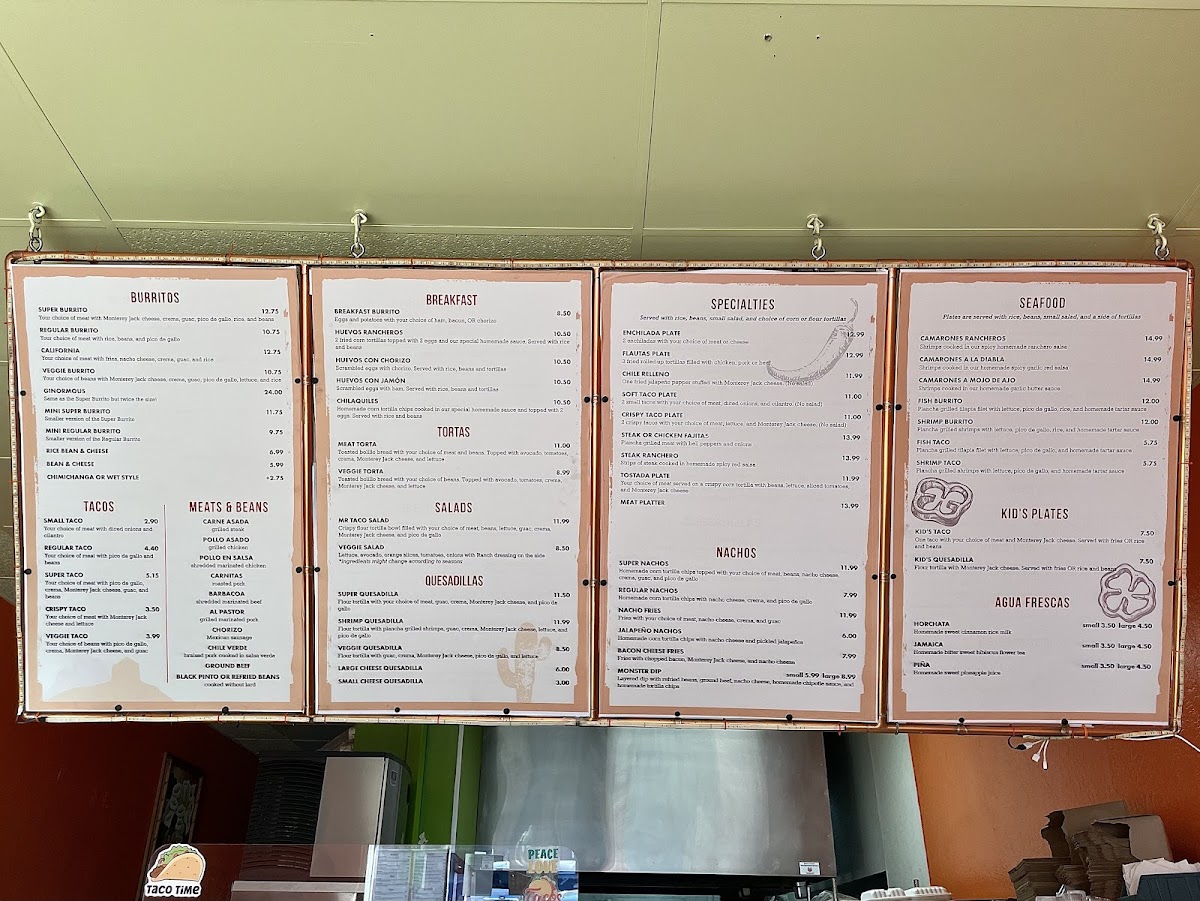 BURRITOS
SUPER BURRITO 12.75
Your choice of meat with Monterey Jack cheese, crema, guac, pico de gallo, rice, and beans
REGULAR BURRITO 10.75
Your choice of meat with rice, beans, and pico de gallo
CALIFORNIA 12.75
Your choice of meat with fries, nacho cheese, crema, guac, and rice
VEGGIE BURRITO 10.75
Your choice of beans with Monterey Jack cheese, crema, guac, pico de gallo, lettuce, and rice
GINORMOUS 24.00
Same as the Super Burrito but twice the size!
MINI SUPER BURRITO 11.75
Smaller version of the Super Burrito
MINI REGULAR BURRITO 9.75
Smaller version of the Regular Burrito
RICE BEAN & CHEESE 6.99
BEAN & CHEESE 5.99
CHIMICHANGA OR WET STYLE +2.75
TACOS
SMALL TACO 2.90
Your choice of meat with diced onions and
cilantro
REGULAR TACO 4.40
Your choice of meat with pico de gallo and
beans
SUPER TACO 5.15
Your choice of meat with pico de gallo,
crema, Monterey Jack cheese, guac, and
beans
CRISPY TACO 3.50
Your choice of meat with Monterey Jack
cheese and lettuce
VEGGIE TACO 3.99
Your choice of beans with pico de gallo,
crema, Monterey Jack cheese, and guac
MEATS & BEANS
CARNE ASADA
grilled steak
POLLO ASADO
grilled chicken
POLLO EN SALSA
shredded marinated chicken
CARNITAS
roasted pork
BARBACOA
shredded marinated beef
AL PASTOR
grilled marinated pork
CHORIZO
Mexican sausage
CHILE VERDE
braised pork cooked in salsa verde
GROUND BEEF
BLACK PINTO OR REFRIED BEANS
cooked without lard
BREAKFAST
BREAKFAST BURRITO 8.50
Eggs and potatoes with your choice of ham, bacon, OR chorizo
HUEVOS RANCHEROS 10.50
2 fried corn tortillas topped with 2 eggs and our special homemade sauce. Served with rice
and beans
HUEVOS CON CHORIZO 10.50
Scrambled eggs with chorizo. Served with rice, beans and tortillas
HUEVOS CON JAMÓN 10.50
Scrambled eggs with ham. Served with rice, beans and tortillas
CHILAQUILES 10.50
Homemade corn tortilla chips cooked in our special homemade sauce and topped with 2
eggs. Served with rice and beans
TORTAS
MEAT TORTA 11.00
Toasted bolillo bread with your choice of meat and beans. Topped with avocado, tomatoes,
crema, Monterey Jack cheese, and lettuce
VEGGIE TORTA 8.99
Toasted bolillo bread with your choice of beans. Topped with avocado, tomatoes, crema,
Monterey Jack cheese, and lettuce
SALADS
MR TACO SALAD 11.99
Crispy flour tortilla bowl filled with your choice of meat, beans, lettuce, guac, crema,
Monterey Jack cheese, and pico de gallo
VEGGIE SALAD 8.50
Lettuce, avocado, orange slices, tomatoes, onions with Ranch dressing on the side
*Ingredients might change according to seasons
QUESADILLAS
SUPER QUESADILLA 11.50
Flour tortilla with your choice of meat, guac, crema, Monterey Jack cheese, and pico de
gallo
SHRIMP QUESADILLA 11.99
Flour tortilla with plancha grilled shrimps, guac, crema, Monterey Jack cheese, lettuce, and
pico de gallo
VEGGIE QUESADILLA 8.50
Flour tortilla with guac, crema, Monterey Jack cheese, pico de gallo, and lettuce
LARGE CHEESE QUESADILLA 6.00
SMALL CHEESE QUESADILLA 3.00
SPECIALTIES
Served with rice, beans, small salad, and choice of corn or flour tortillas
ENCHILADA PLATE 12.99
2 enchiladas with your choice of meat or cheese
FLAUTAS PLATE 12.99
3 fried rolled-up tortillas filled with chicken, pork or beef
CHILE RELLENO 11.99
One fried jalapeño pepper stuffed with Monterey Jack cheese, (No salad)
SOFT TACO PLATE 11.00
2 small tacos with your choice of meat, diced onions, and cilantro. (No salad)
CRISPY TACO PLATE 11.00
2 crispy tacos with your choice of meat, lettuce, and Monterey Jack cheese. (No salad)
STEAK OR CHICKEN FAJITAS 13.99
Plancha grilled meat with bell peppers and onions
STEAK RANCHERO 13.99
Strips of steak cooked in homemade spicy red salsa
TOSTADA PLATE 11.99
Your choice of meat served on a crispy corn tortilla with beans, lettuce, sliced tomatoes,
and Monterey Jack cheese
MEAT PLATTER 13.99
NACHOS
SUPER NACHOS 11.99
Homemade corn tortilla chips topped with your choice of meat, beans, nacho cheese,
crema, guac, and pico de gallo
REGULAR NACHOS 7.99
Homemade corn tortilla chips with nacho cheese, crema, and pico de gallo
NACHO FRIES 11.99
Fries with your choice of meat, nacho cheese, crema, and guac
JALAPEÑO NACHOS 6.00
Homemade corn tortilla chips with nacho cheese and pickled jalapeños
BACON CHEESE FRIES 7.99
Fries with chopped bacon, Monterey Jack cheese, and nacho cheese
MONSTER DIP small 5.99 large 8.99
Layered dip with refried beans, ground beef, nacho cheese, homemade chipotle sauce, and
homemade tortilla chips
SEAFOOD
Plates are served with rice, beans, small salad, and a side of tortillas
CAMARONES RANCHEROS 14.99
Shrimps cooked in our spicy homemade ranchero salsa
CAMARONES A LA DIABLA 14.99
Shrimps cooked in our spicy homemade garlic red salsa
CAMARONES A MOJO DE AJO 14.99
Shrimps cooked in our homemade garlic butter sauce
FISH BURRITO 12.00
Plancha grilled tilapia filet with lettuce, pico de gallo, rice, and homemade tartar sauce
SHRIMP BURRITO 12.00
Plancha grilled shrimps with lettuce, pico de gallo, rice, and homemade tartar sauce
FISH TACO 5.75
Plancha grilled tilapia filet with lettuce, pico de gallo, and homemade tartar sauce
SHRIMP TACO 5.75
Plancha grilled shrimps with lettuce, pico de gallo, and homemade tartar sauce
KID'S PLATES
KID'S TACO 7.50
One taco with your choice of meat and Monterey Jack cheese. Served with fries OR rice
and beans
KID'S QUESADILLA 7.50
Flour tortilla with Monterey Jack cheese. Served with fries OR rice and beans
AGUA FRESCAS
HORCHATA small 3.50 large 4.50
Homemade sweet cinnamon rice milk
JAMAICA small 3.50 large 4.50
Homemade bitter sweet hibiscus flower tea
PIÑA small 3.50 large 4.50
Homemade sweet pineapple juice
TACO TIME
PEACE
LOVE
TACOS